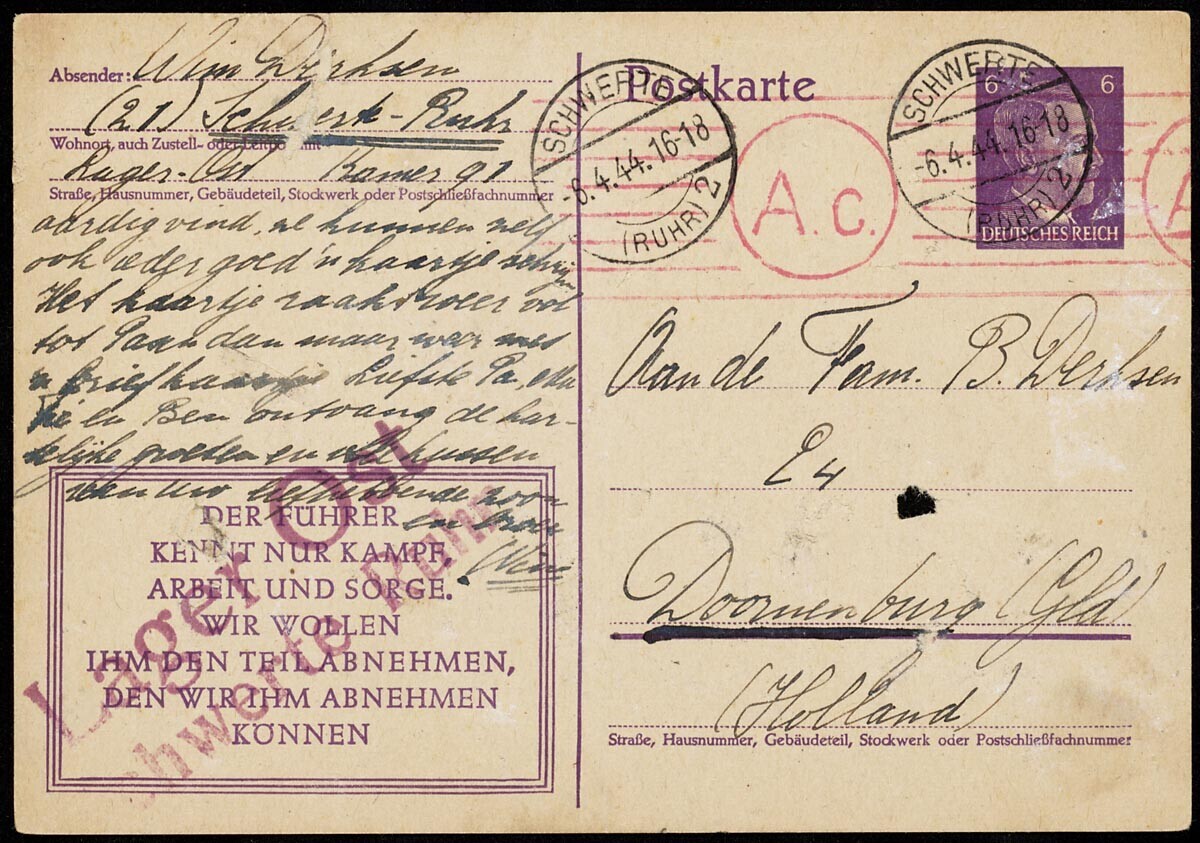 Absender: Wim Derksen
(21) Schwerte-Ruhr
Wohnort, auch Zustell- oder Leitpostamt
Lager-Ost Kamer 91
Straße, Hausnummer, Gebäudeteil, Stockwerk oder Postschließfachnummer
aardig vind, we kunnen
ook ieder goed 'n kaartje
Het kaartje raakt weer vol
tot dan maar weer met
'n briefkaartje Liefste Pa,
en Ben ontvang de har-
telijke groeten en kussen
van uw liefhebbende zoon
en broer
Wim
DER FÜHRER
KENNT NUR KAMPF,
ARBEIT UND SORGE.
WIR WOLLEN
IHM DEN TEIL ABNEHMEN,
DEN WIR IHM ABNEHMEN
KÖNNEN
Lager Ost
Schwerte Ruhr
Postkarte
SCHWERTE
-6.4.44.16-18
(RUHR) 2
A.c.
SCHWERTE
-6.4.44.16-18
(RUHR) 2
6 6
DEUTSCHES REICH
A
Aan de Fam. B. Derksen
E4
Doornenburg (Gld)
(Holland)
Straße, Hausnummer, Gebäudeteil, Stockwerk oder Postschließfachnummer